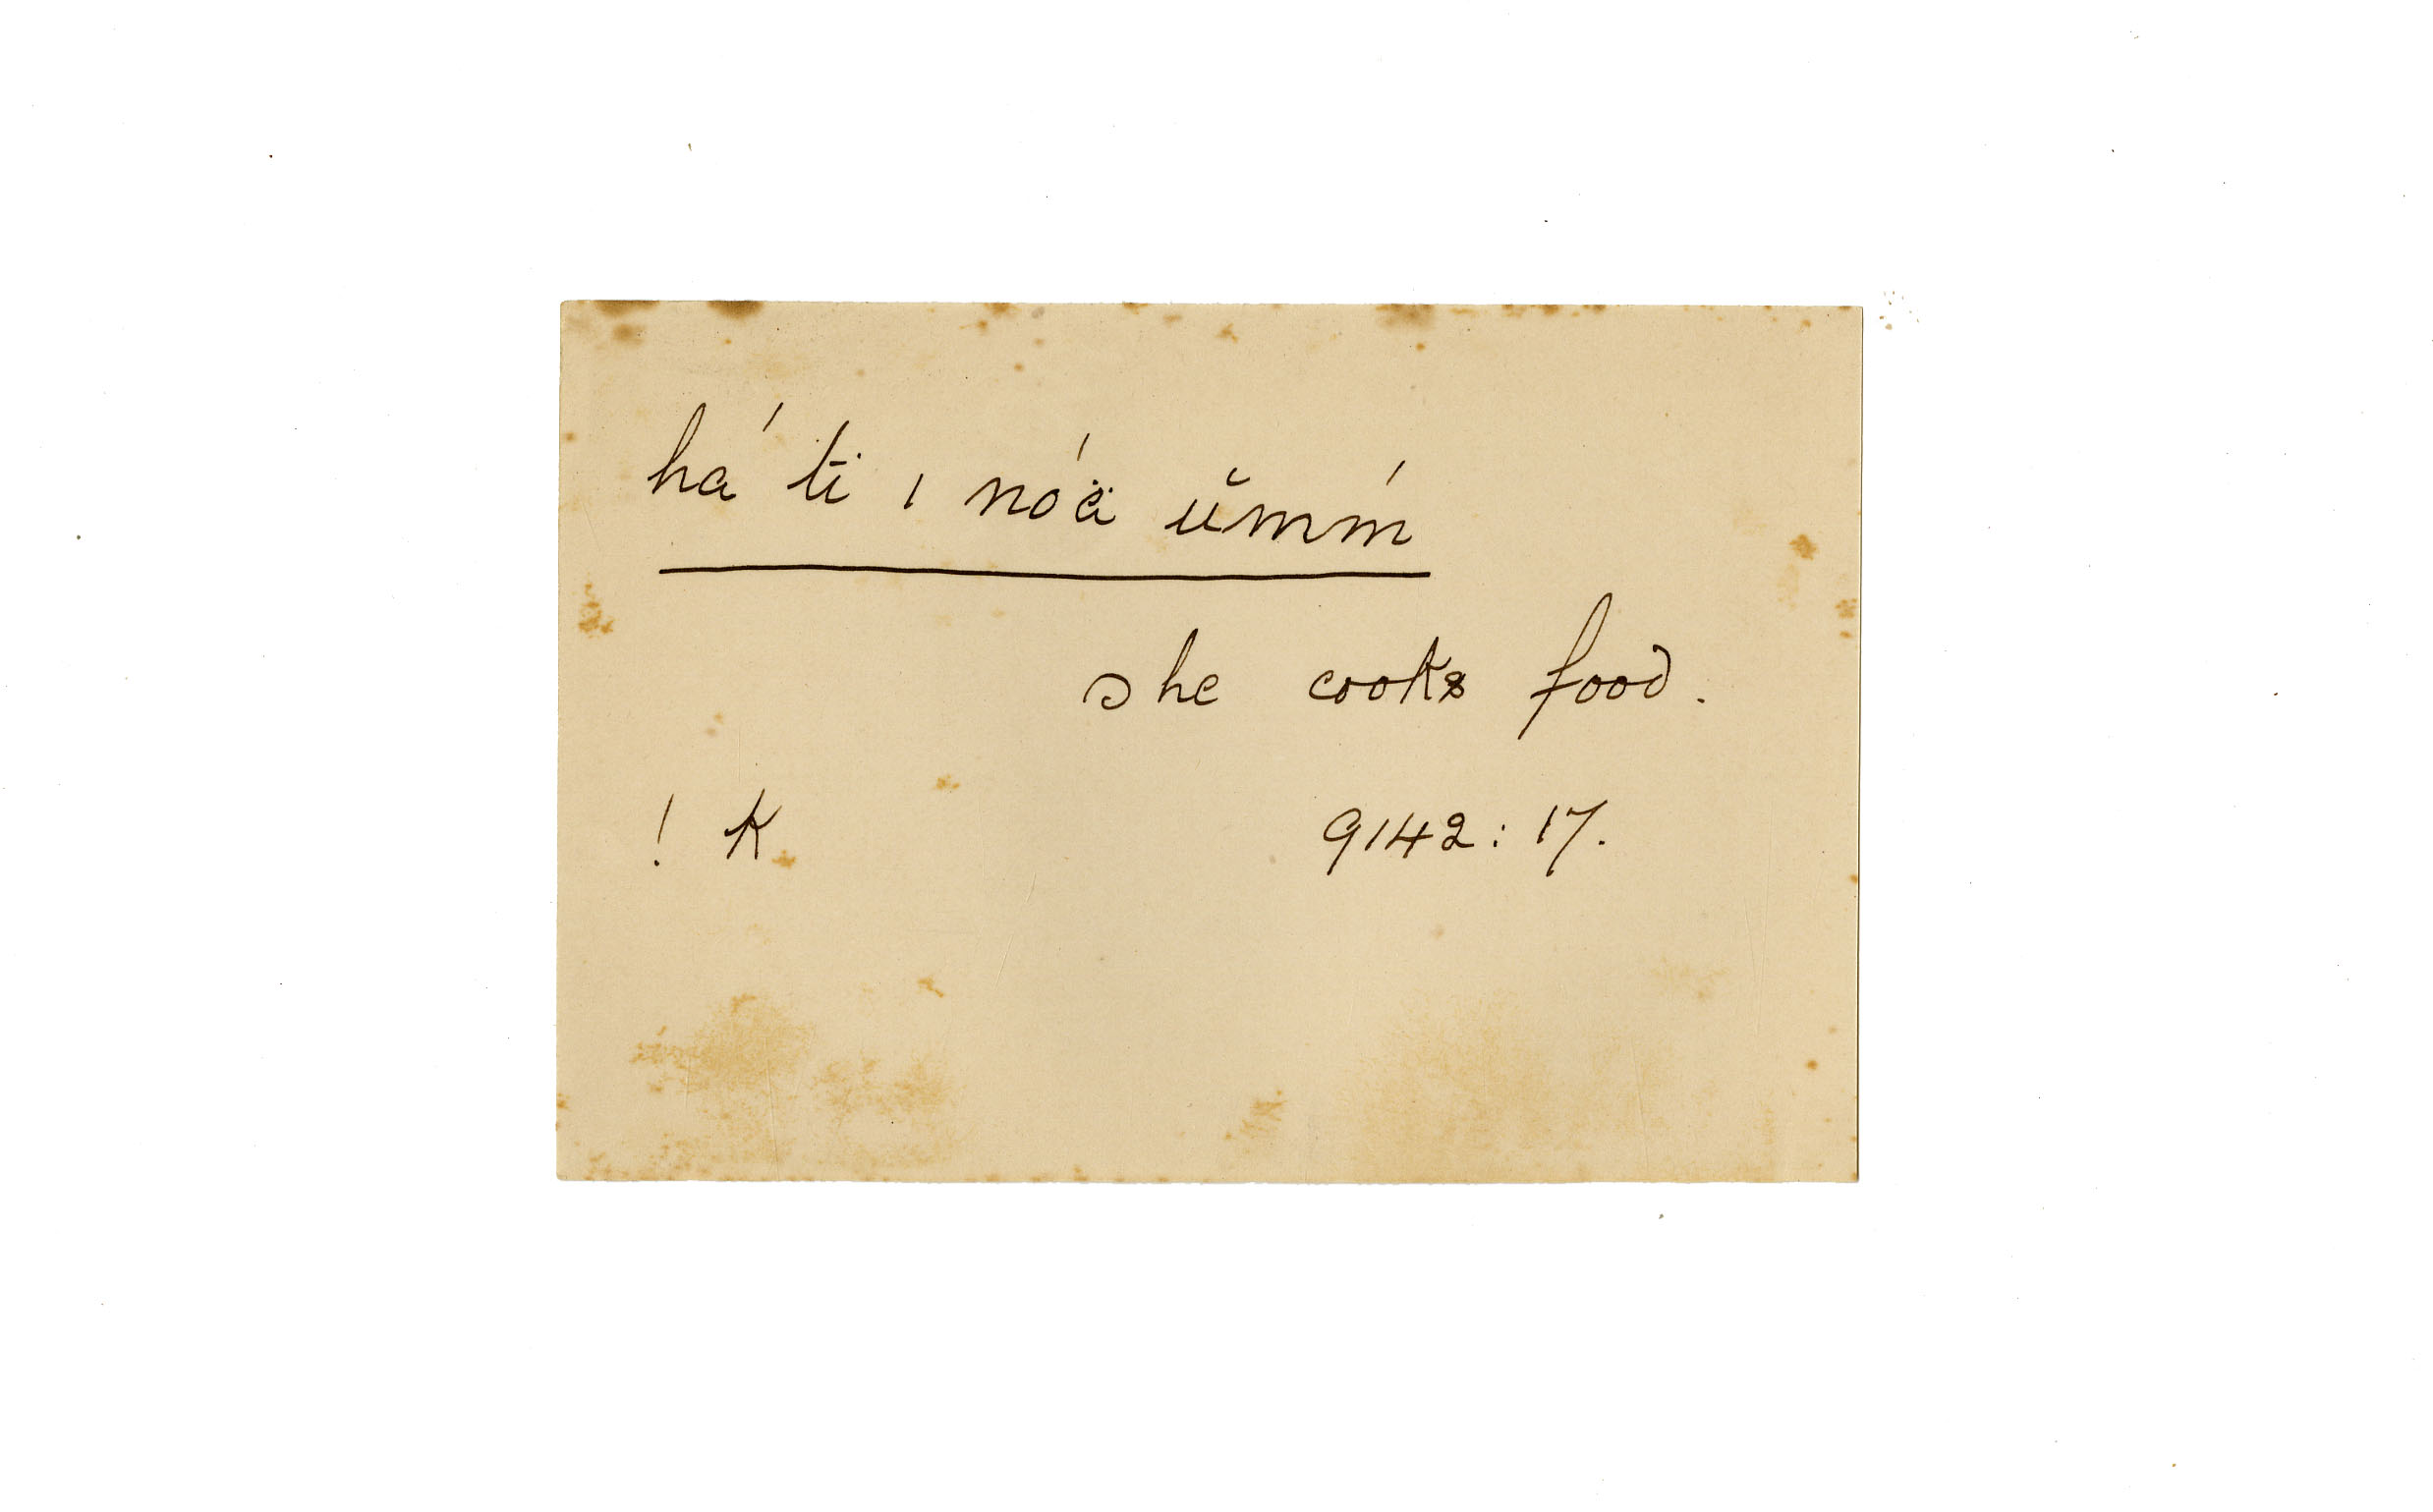 há ti ı nóä ŭmḿ
she cooks food.
! K. 9142: 17.